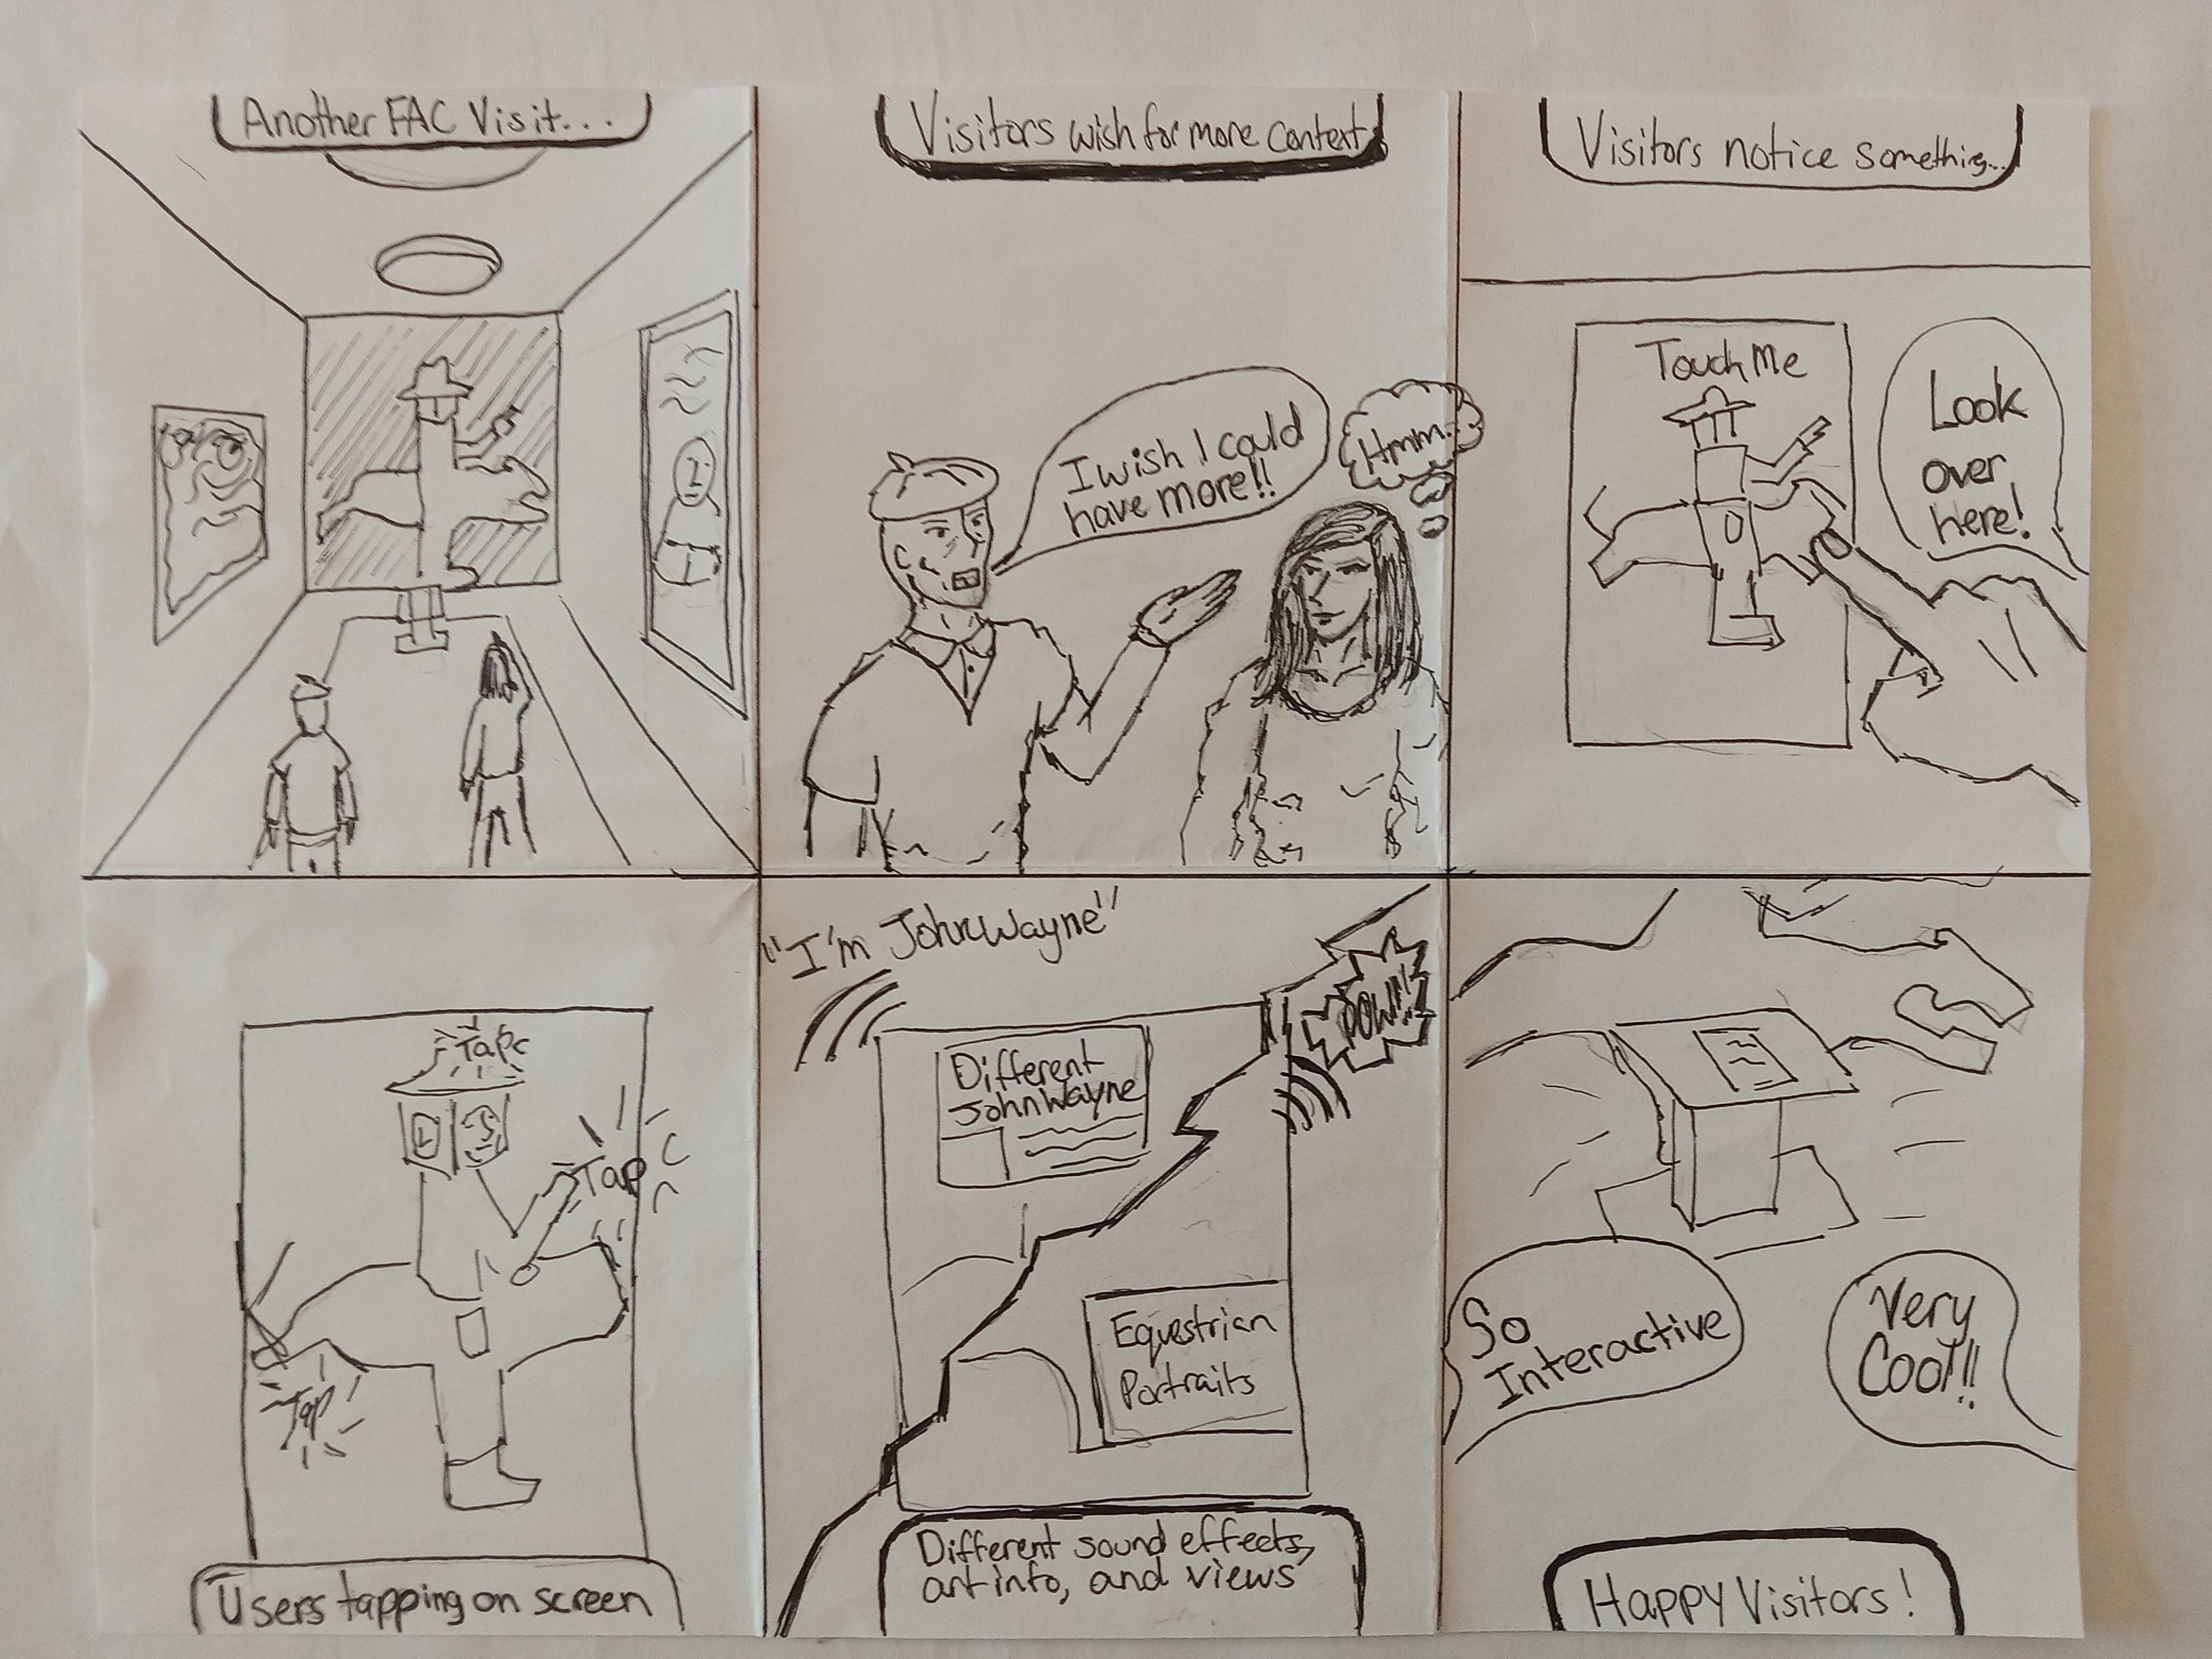 Another FAC Visit...
Visitors wish for more context
I wish I could
have more!!
Hmm..
Visitors notice something...
Touch Me
Look
over
here!
Tap
Tap
Tap
Users tapping on screen
"I'm John Wayne"
POW!!!
Different
John Wayne
Equestrian
Portraits
Different sound effects,
art info, and views
So
Interactive
Very
Cool!!
Happy Visitors!